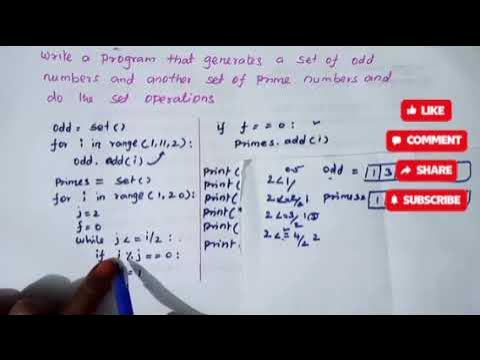 write a program that generates a set of odd
numbers and another set of prime numbers and
do the set operations
odd = set()
for i in range(1,11,2):
odd.add(i)
primes = set()
for i in range(1,20):
j=2
f=0
while j<=i/2:
if i%j==0:
=1
if f==0:
primes.add(i)
print(
print(
print(
print(
print(
print
2<1/
2<=3/
2<=4/2 2
odd = 1 3
primes= 1
LIKE
COMMENT
SHARE
SUBSCRIBE